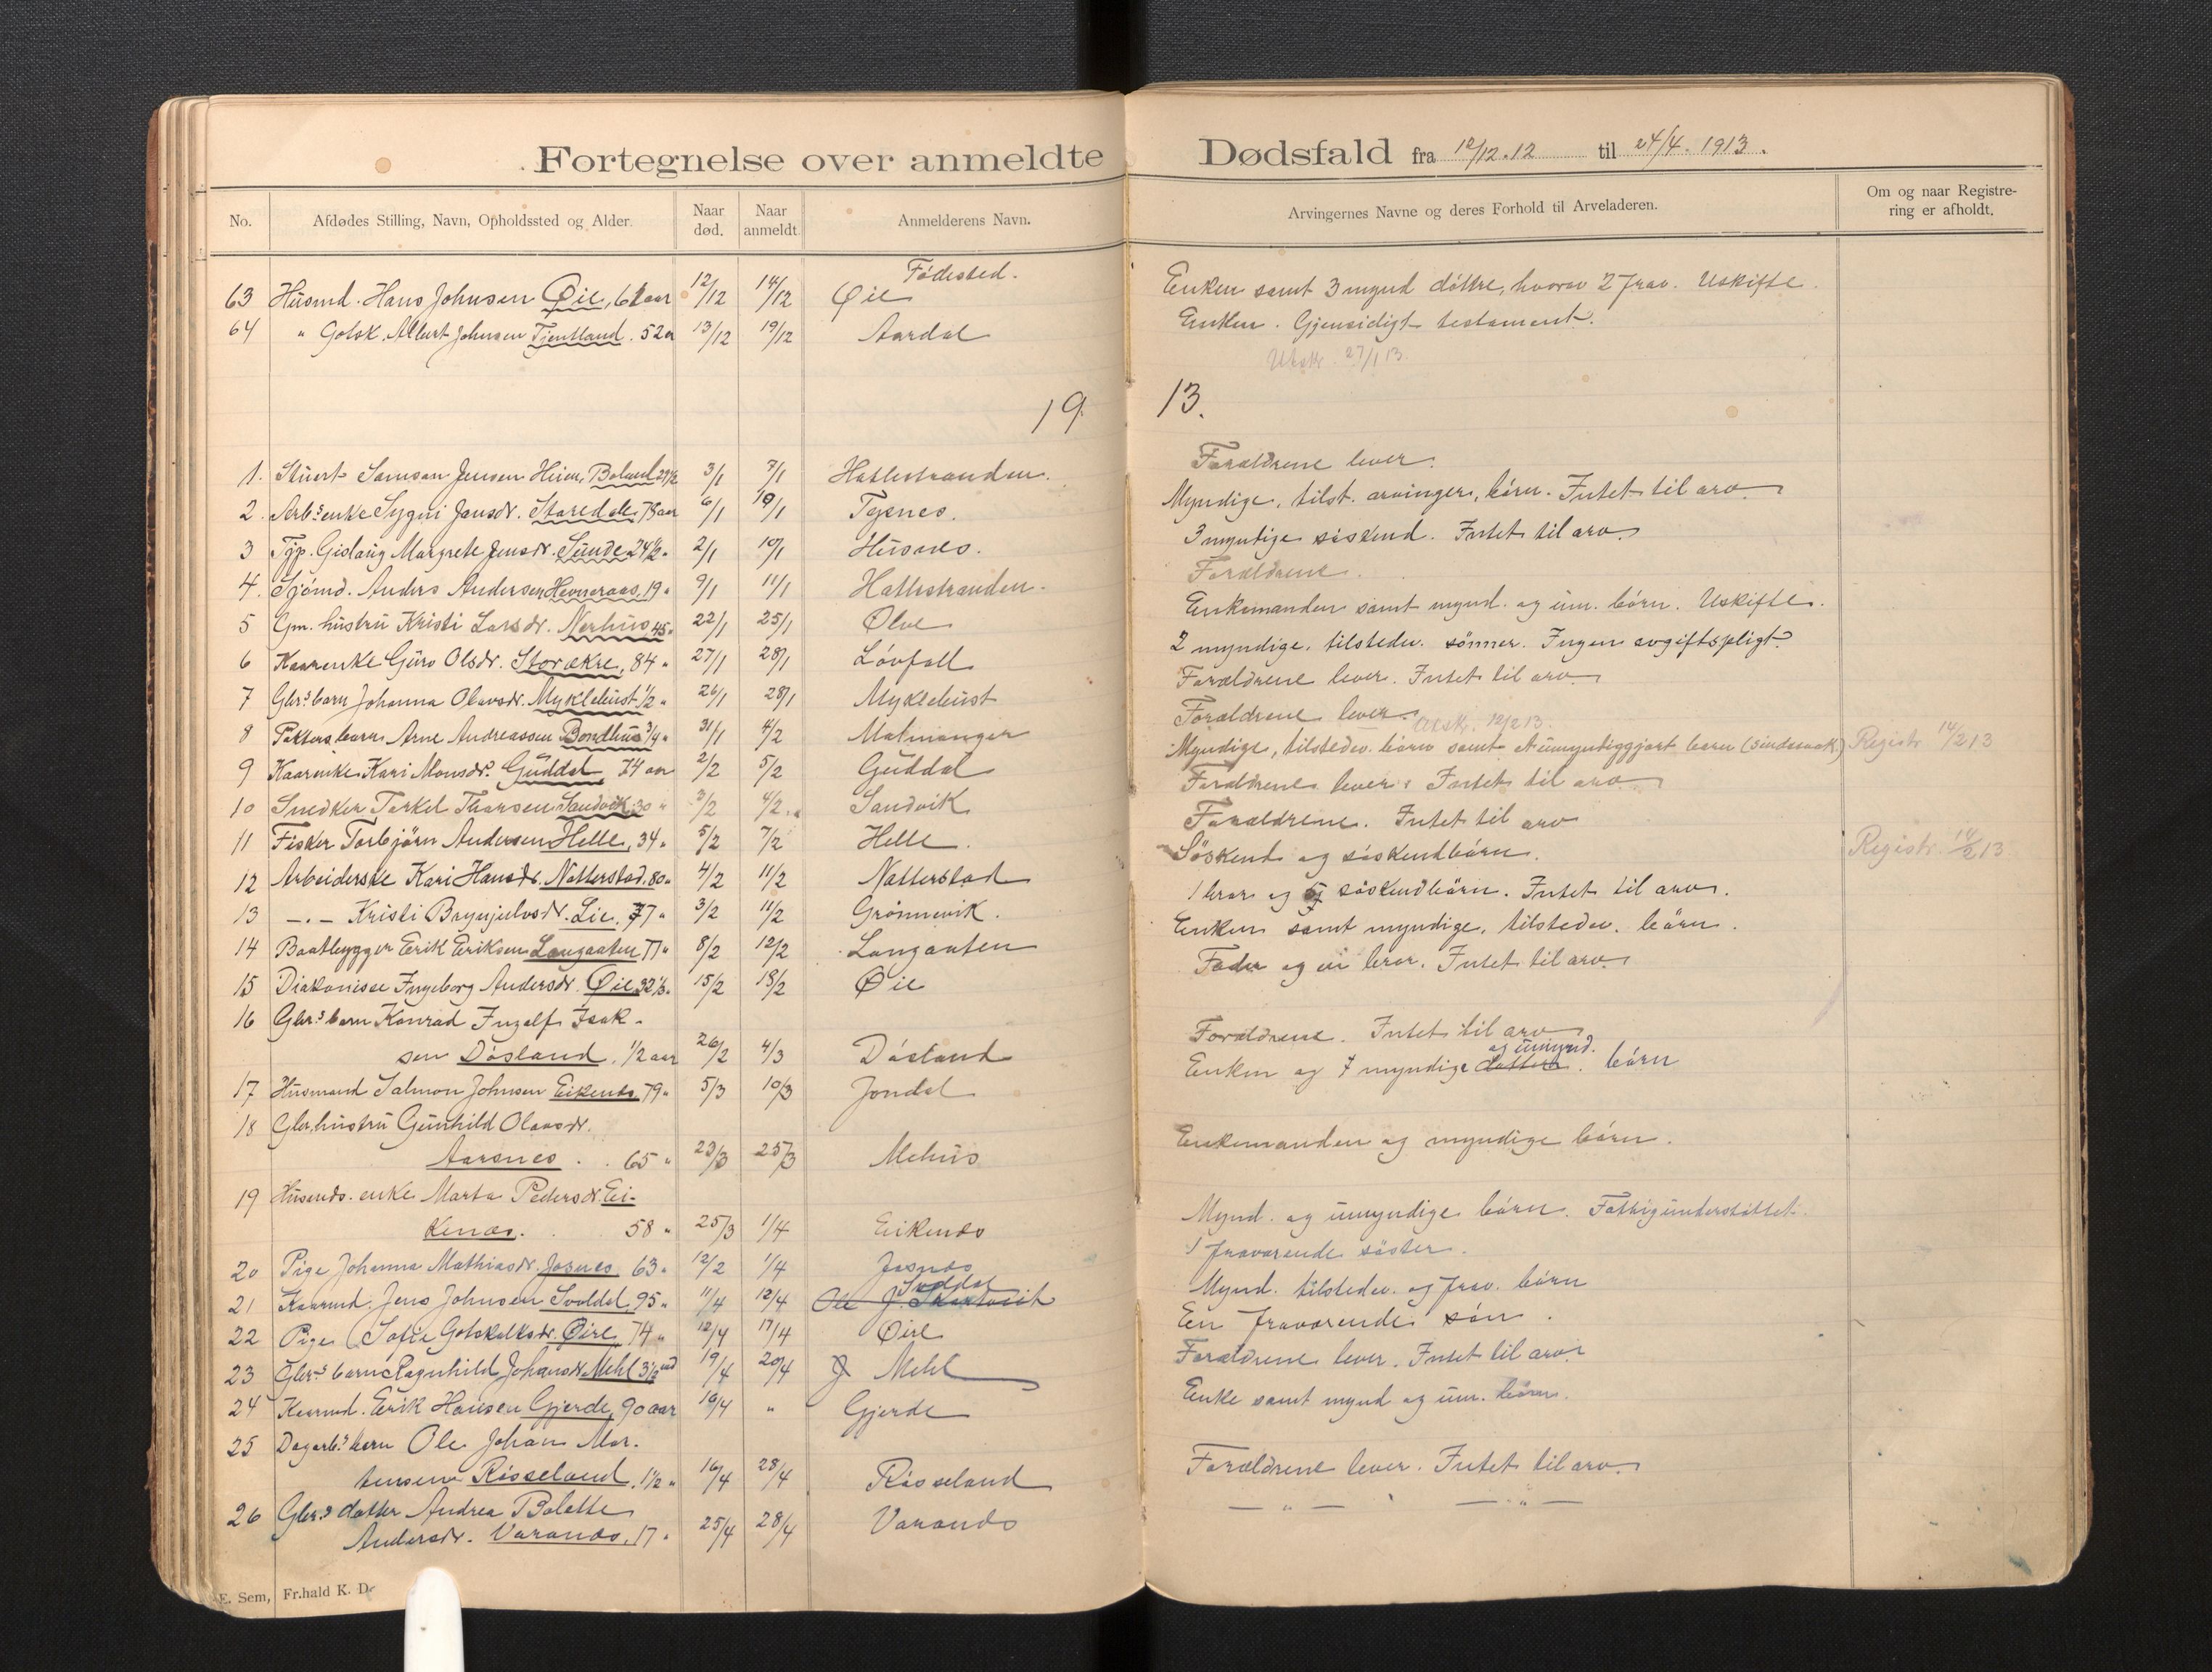 Fortegnelse over anmeldte Dødsfald fra 12/12.12 til 24/4. 1913.
No. Afdødes Stilling, Navn, Opholdssted og Alder. Naar død. Naar anmeldt. Anmelderens Navn. Arvingernes Navne og deres Forhold til Arveladeren. Om og naar Registrering er afholdt.
Fødested.
63 Husmd. Hans Johnsen Øie, 61 aar 12/12 14/12 Øie Enken samt 3 mynd døttre, hvorav 2 frav. Uskifte.
64 " Gotsk. Albert Johnsen Tjentland. 52 a 13/12 19/12 Aardal Enken. Gjensidigt testament.
Utskr. 27/1 13.
1913.
1. Stuert Samson Jensen Heien, Boland 29 1/2 3/1 7/1 Hatlestranden. Forældrene lever.
2. Arb.s enke Sygni Jansdr. Staredale, 73 aar 6/1 10/1 Tysnes. Myndige, tilst. arvinger, børn. Intet til arv.
3 Tjp. Gislaug Margrete Jensdr. Sunde 24 1/2 " 2/1 10/1 Husnes. 3 myndige søskend. Intet til arv.
4. Sjømd. Anders Andersen Hevneraas, 19 " 9/1 11/1 Hatlestranden. Forældrene.
5 Gm. hustru Kristi Larsdr. Nerhus, 45 " 22/1 25/1 Ølve Enkemanden samt mynd. og um. børn. Uskifte.
6 Kaarenke Guro Olsdr. Storækre, 84 " 27/1 28/1 Løvfall 2 myndige, tilstedev. sønner. Ingen avgiftspligt.
7 Gbr.s barn Johanna Olavsdr. Myklebust 1/2 " 26/1 28/1 Myklebust Forældrene lever. Intet til arv.
8 Pakters barn Arne Andreassen Bondhus 3/4 " 31/1 4/2 Malmanger Forældrene lever.
Utskr. 12/2 13.
9 Kaarenke Kari Monsdr. Guddal, 74 aar 2/2 5/2 Guddal Myndige, tilstedev. børn samt et umyndiggjort barn (sindssvak) Registr 14/2 13
10 Snedker Torkel Thorsen Sandvik 30 " 3/2 4/2 Sandvik Forældrene lever. Intet til arv.
11 Fisker Torbjørn Andersen Helle, 34 " 5/2 7/2 Helle. Forældrene. Intet til arv
12 Arbeiderske Kari Hansdr. Natterstad. 80 " 4/2 11/2 Natterstad Søskend og søskendbørn. Registr. 14/2 13
13 - " - Kristi Brynjulvsdr. Lie, 77 " 3/2 11/2 Grønnevik. 1 bror og 5 søskendbørn. Intet til arv.
14 Baatbygger Erik Eriksen Langaaten 77 " 8/2 12/2 Langaaten Enken samt myndige, tilstedev. børn.
15 Diakonisse Ingeborg Andersdr. Øie 32 1/3 " 15/2 18/2 Øie Fader og en bror. Intet til arv.
16 Gbr.s barn Konrad Ingolf Isak-
sen Døsland, 1/2 aar 26/2 4/3 Døsland Forældrene. Intet til arv
17 Husmand Salmon Johnsen Eikenes 79 " 5/3 10/3 Jondal Enken og 7 myndige døttre og umynd. børn
18 Gbr. hustru Gunhild Olavsdr.
Aarsnes. 65 " 23/3 25/3 Mehus Enkemanden og myndige børn.
19 Husmds. enke Marta Pedersdr. Ei-
kenæs. 58 " 25/3 1/4 Eikenes Mynd. og umyndige børn. Fattigunderstøttet.
20 Pige Johanna Mathiasdr. Josnes 63 " 12/2 1/4 Josnes 1 fraværende søster.
21 Kaarmd. Jens Johnsen Svoldal, 95 " 11/4 12/4 Svoldal Mynd. tilstedev. og frav. børn
22 Pige Sofie Gotskalksdr. Øire, 74 " 12/4 17/4 Øire En fraværende søn.
23 Gbr.s barn Ragnhild Johansdr. Mehl 3 1/2 md 19/4 20/4 Mehl Forældrene lever. Intet til arv.
24 Kaarmd. Erik Hansen Gjerde, 90 aar 16/4 " Gjerde Enke samt mynd og um. børn.
25 Dagarb.s barn Ole Johan Mar-
tensen Røsseland, 1 1/2 " 16/4 28/4 Røsseland Forældrene lever. Intet til arv.
26 Gbr.s datter Andrea Bolette
Andersdr. Varandø, 17 " 25/4 28/4 Varandø — " — — " —
E. Sem, Fr.hald K. D